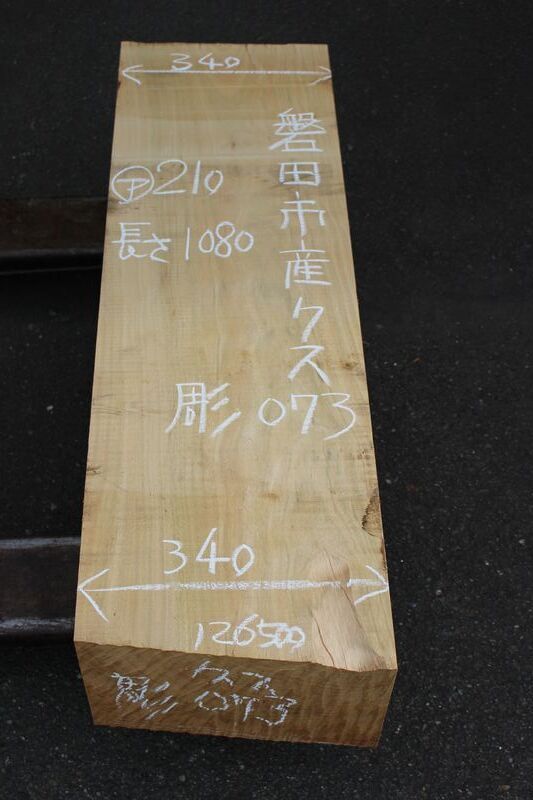 340
磐田市産クス
㋐210
長さ1080
彫 073
340
126500
クス
彫 073